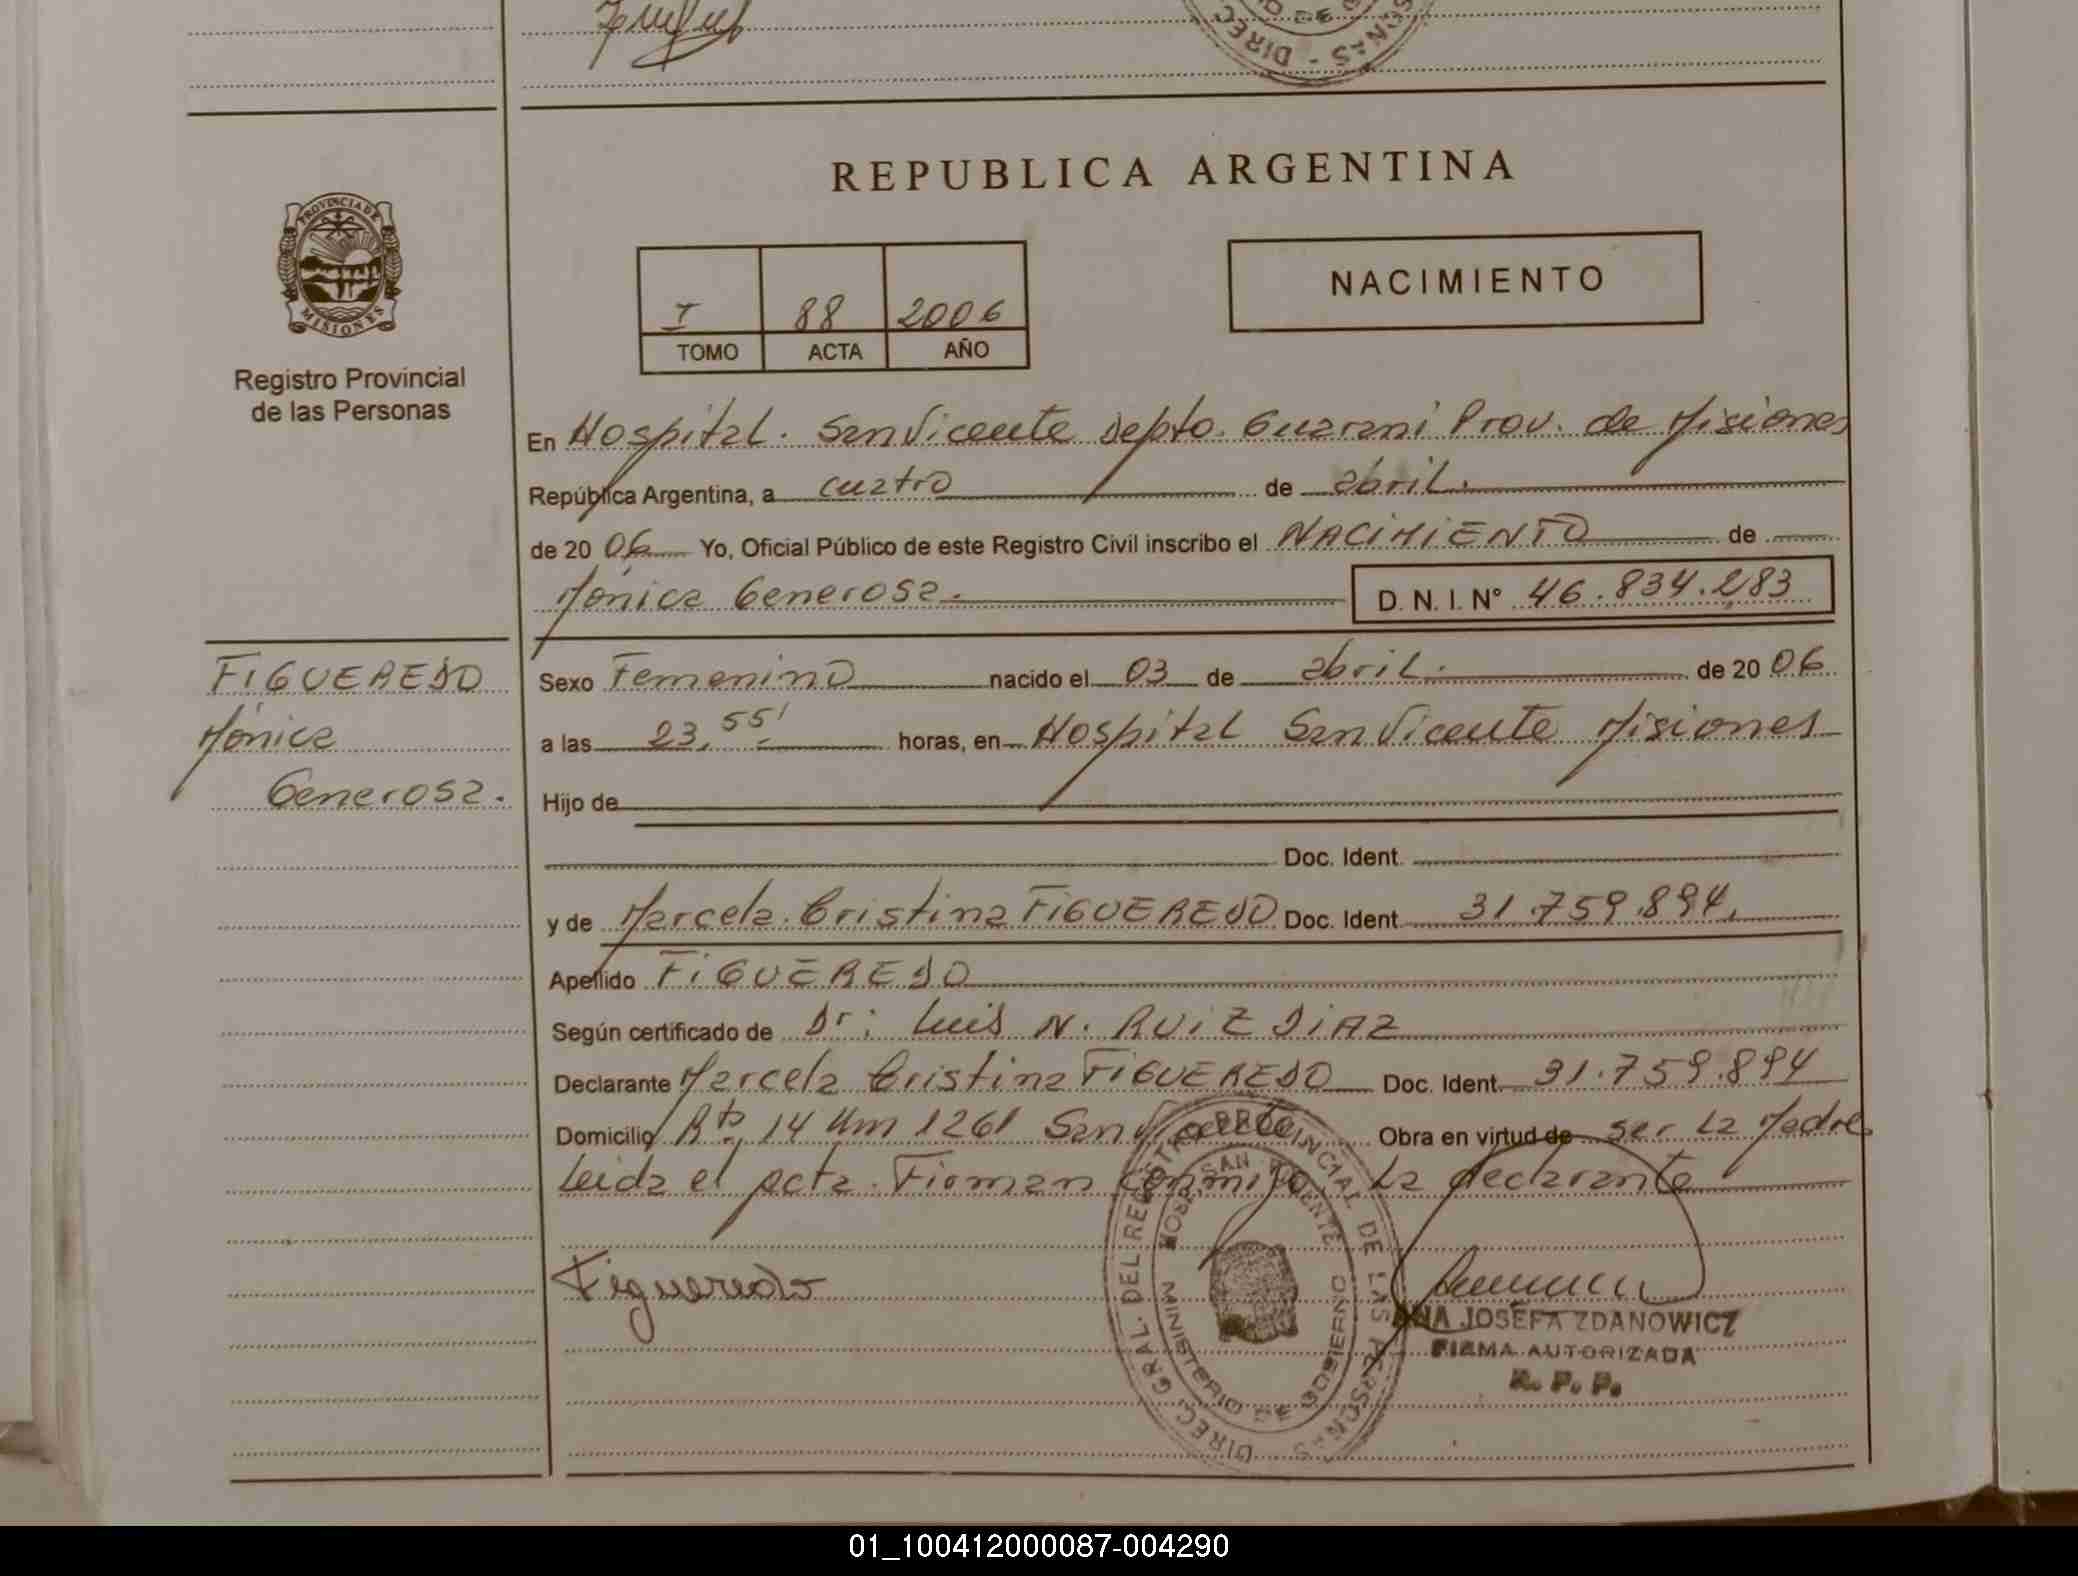 REPUBLICA ARGENTINA
PROVINCIA DE MISIONES
Registro Provincial
de las Personas
I 88 2006
TOMO ACTA AÑO
NACIMIENTO
En Hospital. San Vicente Depto. Guarani Prov. de Misiones
República Argentina, a cuatro de abril.
de 20 06 Yo, Oficial Público de este Registro Civil inscribo el NACIMIENTO de
Mónica Generosa. D. N. I. N° 46.834.283
FIGUEREDO
Mónica
Generosa.
Sexo Femenino nacido el 03 de abril. de 20 06
a las 23,55' horas, en Hospital San Vicente Misiones
Hijo de
Doc. Ident.
y de Marcela Cristina FIGUEREDO Doc. Ident. 31.759.894.
Apellido FIGUEREDO
Según certificado de Dr: Luis N. RUIZ DIAZ
Declarante Marcela Cristina FIGUEREDO Doc. Ident. 31.759.894
Domicilio Rta. 14 Km 1261 San Vicente Obra en virtud de ser la Madre
Leida el acta. Firman conmigo La declarante
Figueredo
DIREC. GRAL. DEL REGISTRO PROVINCIAL DE LAS PERSONAS
HOSP. SAN VICENTE
MINISTERIO DE GOBIERNO
ANA JOSEFA ZDANOWICZ
FIRMA AUTORIZADA
R. P. P.
01_100412000087-004290